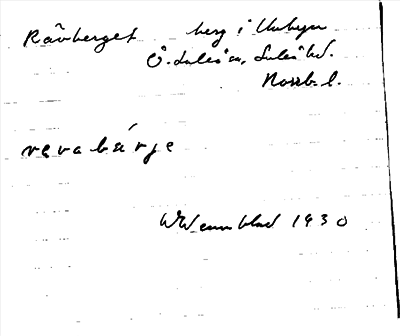 Rävberget berg i Unbyn
Ö. Luleå sn, Luleå hd.
Norrb. l.
revabärje
W Wennblad 1930